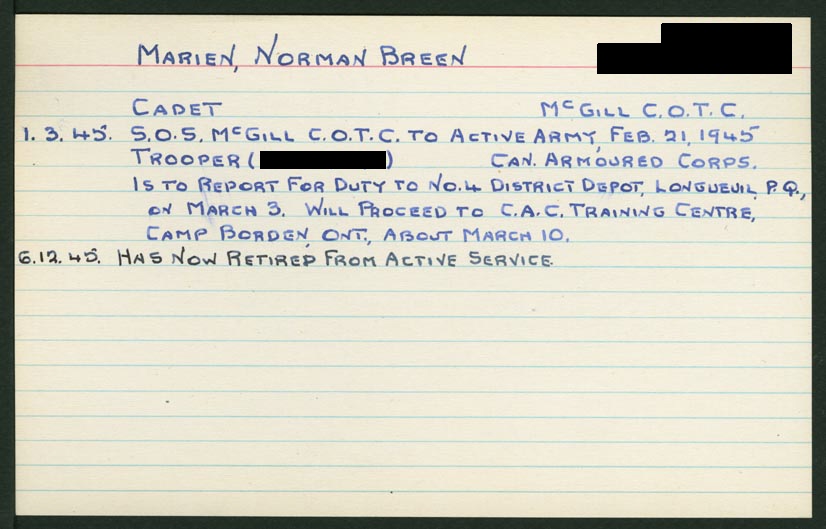 MARIEN, NORMAN BREEN
CADET McGILL C.O.T.C.
1.3.45. S.O.S. McGILL C.O.T.C. TO ACTIVE ARMY, FEB. 21, 1945
TROOPER ( ) CAN. ARMOURED CORPS.
IS TO REPORT FOR DUTY TO NO.4 DISTRICT DEPOT, LONGUEUIL, P.Q.,
ON MARCH 3. WILL PROCEED TO C.A.C. TRAINING CENTRE,
CAMP BORDEN, ONT., ABOUT MARCH 10.
6.12.45. HAS NOW RETIRED FROM ACTIVE SERVICE.